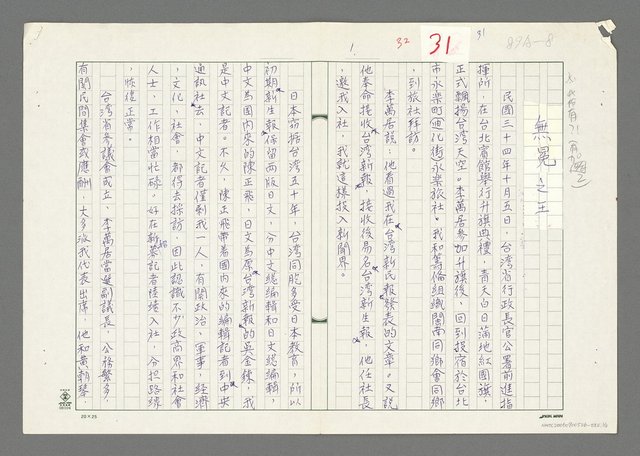 31
32
31
89A-8
1.
無冕之王
民國三十四年十月五日，台湾省行政長官公署前進指
揮所，在台北賓館舉行升旗典禮，青天白日滿地紅國旗，
正式飄揚台湾天空。李萬居參加升旗後，回到投宿於台北
市永樂町迪化街永樂旅社。我和籌備組織閩南同鄉會同鄉
到旅社拜訪。
李萬居說，他看過我在台湾新民報發表的文章。又說
他奉命接收台湾新報，接收後易名台湾新生報，他任社長
，邀我入社，我就這樣投入新聞界。
日本竊据台湾五十年，台湾同胞多受日本教育，所以
初期新生報保留兩版日文，分中文總編輯和日文總編輯，
中文為國内來的陳正飛，日文為原台湾新報的吳金鍊，我
是中文記者。不久，陳正飛帶着國内來的編輯記者到中央
通訊社去，中文記者僅剩我一人，有關政治、軍事、經濟
、文化、社會，都得去採訪，因此認識不少政商界和社會
人士，工作相當忙碌，好在新聘記者陸續入社，分担路線
，恢復正常。
台湾省參議會成立，李萬居當選副議長，公務繁多，
有關民間集會或應酬，大多派我代表出席，他和黃朝琴、
20×25